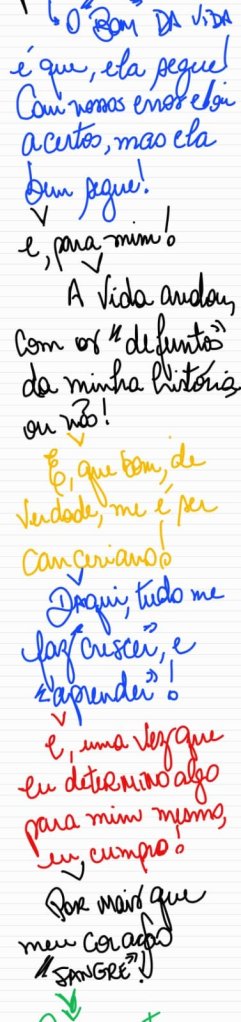 O "Bom DA VIDA
é que, ela segue!
Com nossos erros e/ou
acertos, mas ela
bem segue!
e, para mim!
A vida andou,
com os "defuntos"
da minha história,
ou não!
E, que bom, de
verdade, me é ser
canceriano!
Daqui, tudo me
faz "crescer", e
"aprender"!
e, uma vez que
eu determino algo
para mim mesmo,
eu, cumpro!
Por mais que
meu coração
"SANGRE"!